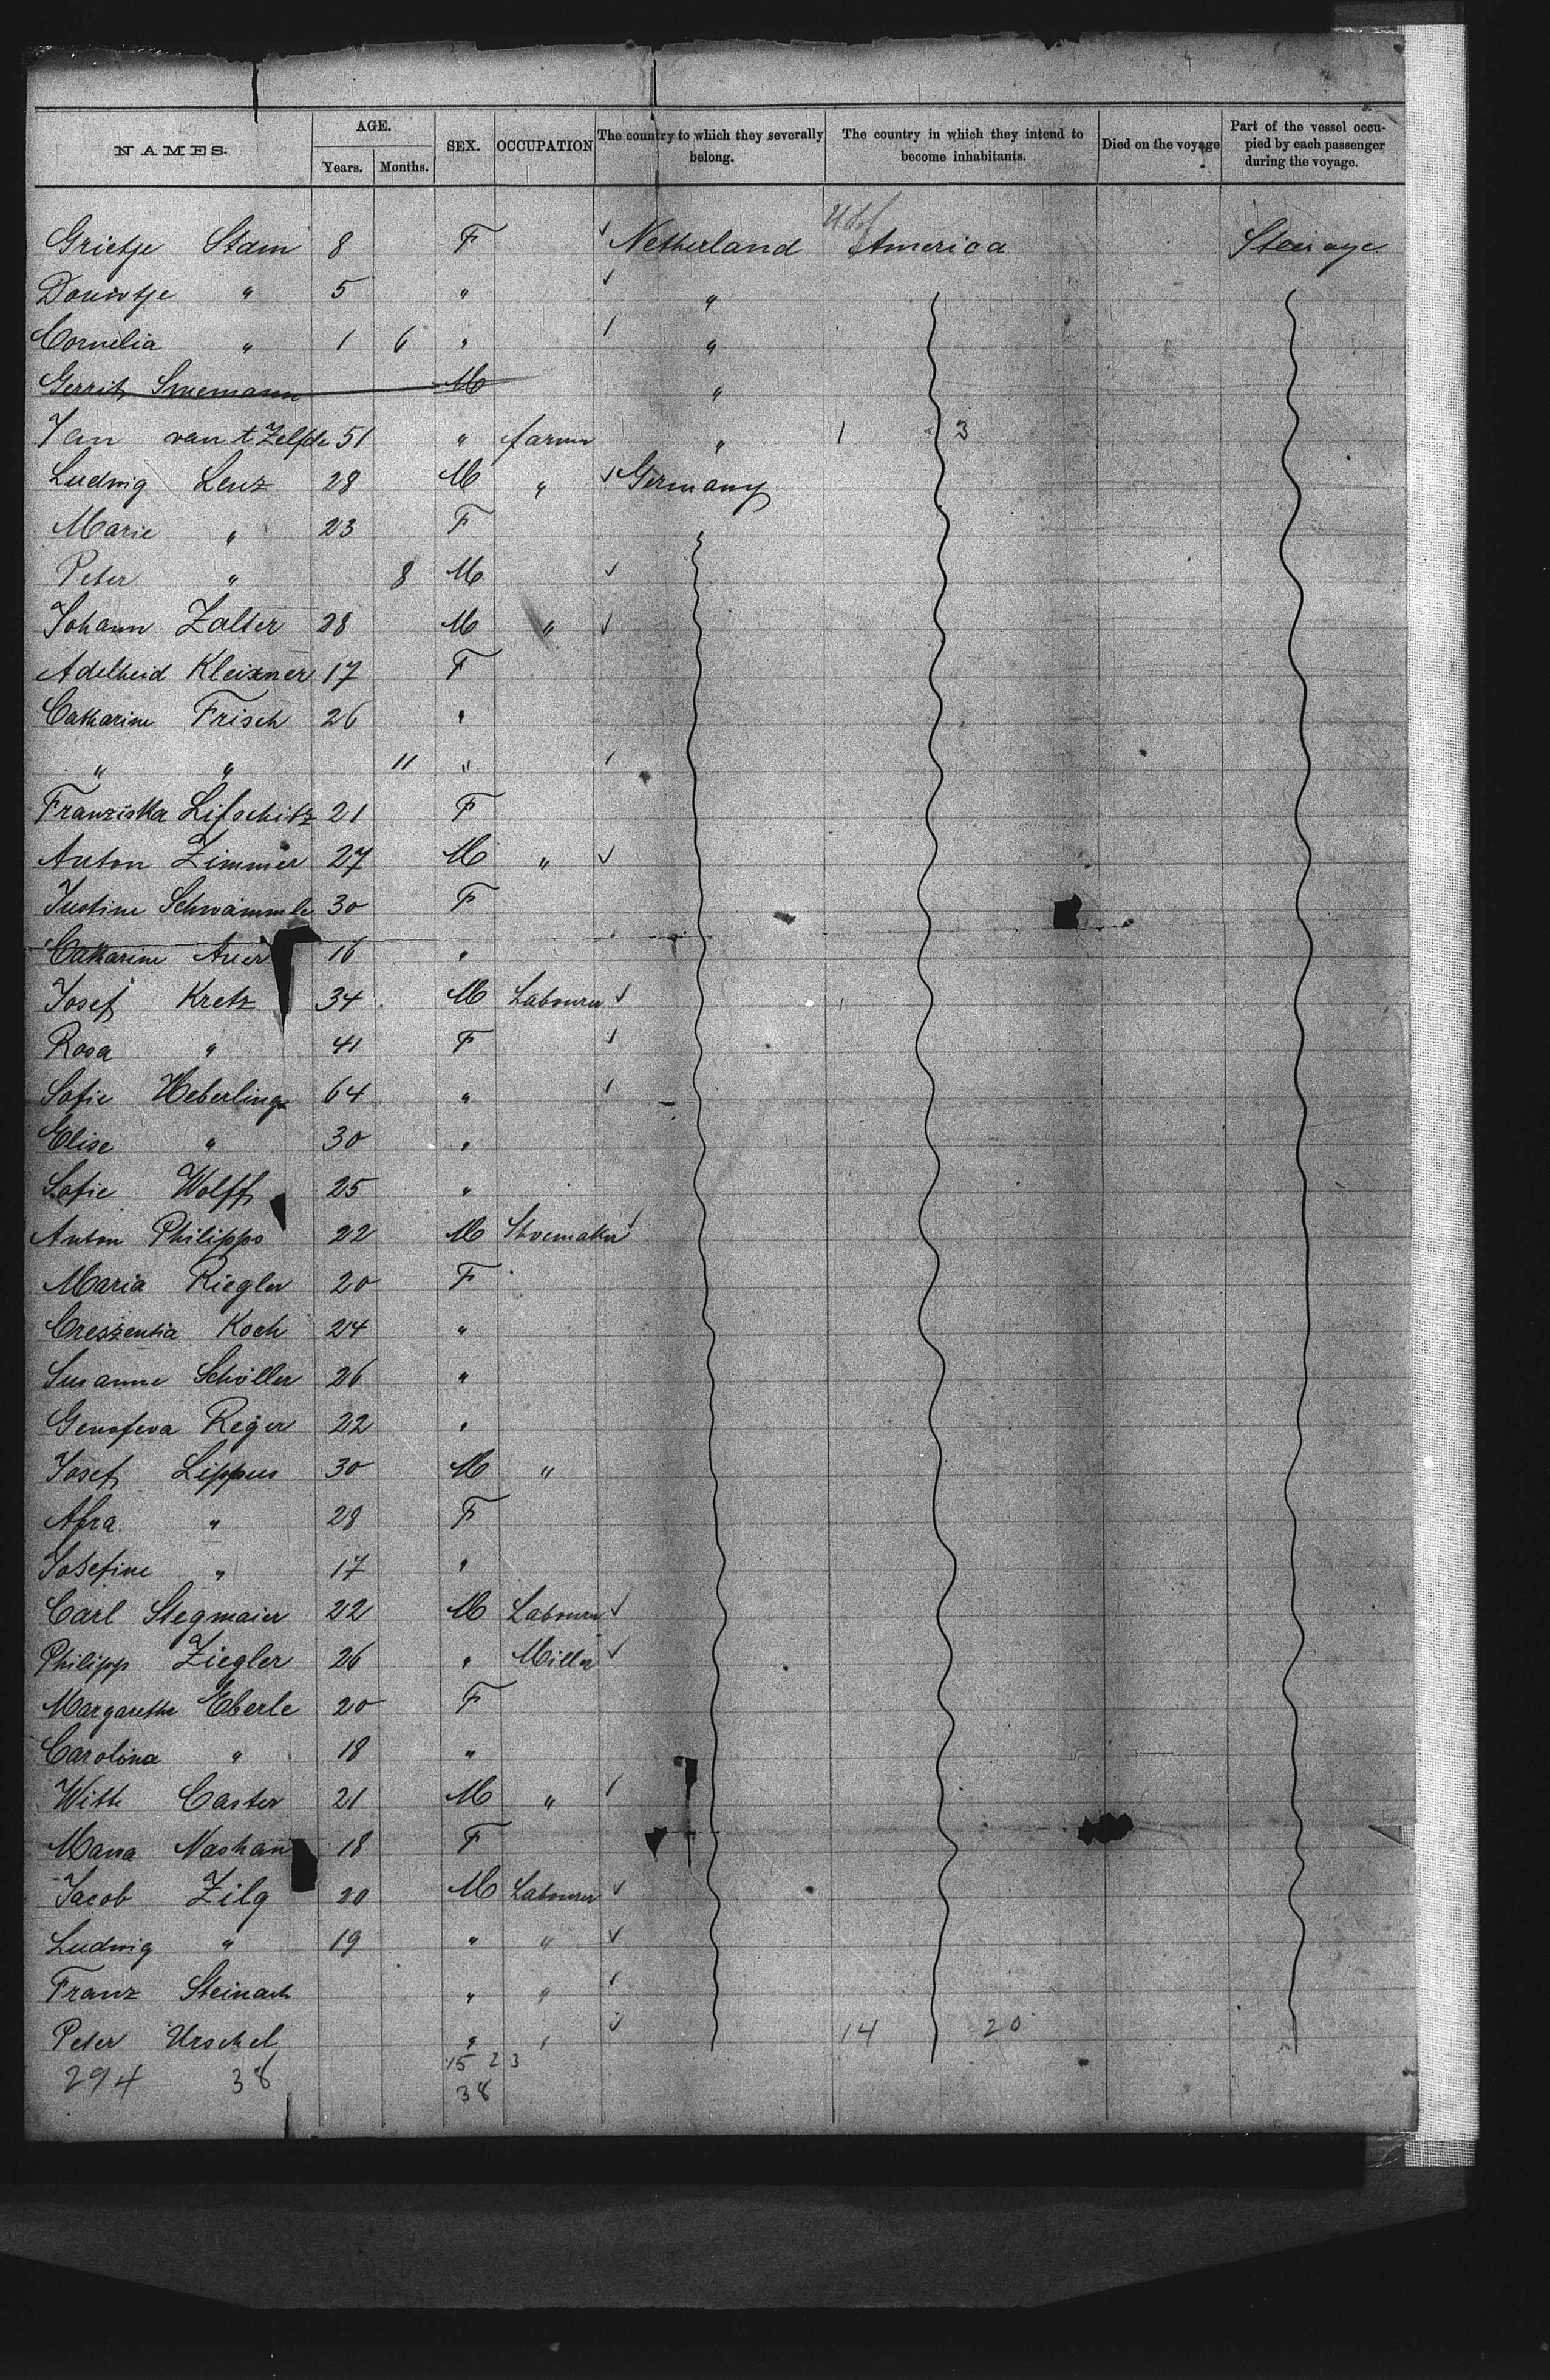 NAMES. AGE. Years. Months. SEX. OCCUPATION The country to which they severally belong. The country in which they intend to become inhabitants. Died on the voyage Part of the vessel occupied by each passenger during the voyage.
Grietje Stam 8 F ✓ Netherland America Steerage
" 5 " ✓ "
Cornelia " 1 6 " "
Gerrit M "
Jan van t Zelfde 51 " farmer " 1 3
Ludwig Lenz 28 M " ✓ Germany
Marie " 23 F
Peter " 8 M ✓
Johann Zalter 28 M " ✓
Adelheid Kleixner 17 F
Catharine Frisch 26 "
" " 11 "
Franziska Lifschitz 21 F
Anton Zimmer 27 M " ✓
Justine Schwämmle 30 F
Catharine Auer 16 "
Josef Kretz 34 M Labourer ✓
Rosa " 41 F
Sofie Heberling 64 "
Elise " 30 "
Sofie Wolff 25 "
Anton Philipps 22 M Shoemaker ✓
Maria Riegler 20 F
Creszentia Koch 24 "
Susanne Schöller 26 "
Genofeva Reger 22 "
Josef Lippus 30 M "
Afra " 28 F
Josefine " 17 "
Carl Stegmaier 22 M Labourer ✓
Philipp Ziegler 26 " Miller ✓
Margarethe Eberle 20 F
Carolina " 18 "
Caster 21 M "
18 F
Jacob Zilg 20 M Labourer ✓
Ludwig " 19 " " ✓
Franz Steinach " "
Peter Urschel " " ✓ 14 20
294 38 15 23
38